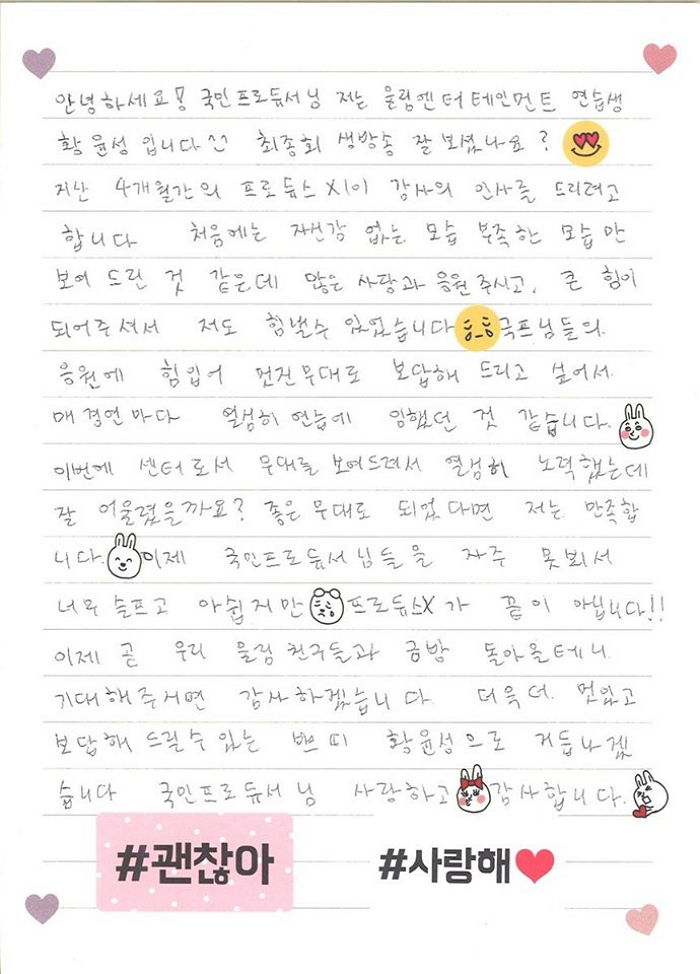 안녕하세요! 국민 프로듀서님 저는 울림엔터테인먼트 연습생
황윤성 입니다^^ 최종회 생방송 잘 보셨나요?
지난 4개월간의 프로듀스X1이 감사의 인사를 드리려고
합니다 처음에는 자신감 없는 모습 부족한 모습만
보여 드린 것 같은데 많은 사랑과 응원 주시고, 큰 힘이
되어주셔서 저도 힘낼수 있었습니다 국프님들의
응원에 힘입어 멋진무대로 보답해 드리고 싶어서
매 경연마다 열심히 연습에 임했던 것 같습니다.
이번에 센터로서 무대를 보여드려서 열심히 노력했는데
잘 어울렸을까요? 좋은 무대로 되었다면 저는 만족합
니다. 이제 국민프로듀서님들을 자주 못봬서
너무 슬프고 아쉽지만 프로듀스X가 끝이 아닙니다!!
이제 곧 우리 울림 친구들과 금방 돌아올테니
기대해주시면 감사하겠습니다. 더욱더 멋있고
보답해 드릴수 있는 쁘띠 황윤성으로 거듭나겠
습니다 국민프로듀서님 사랑하고 감사합니다.
#괜찮아 #사랑해